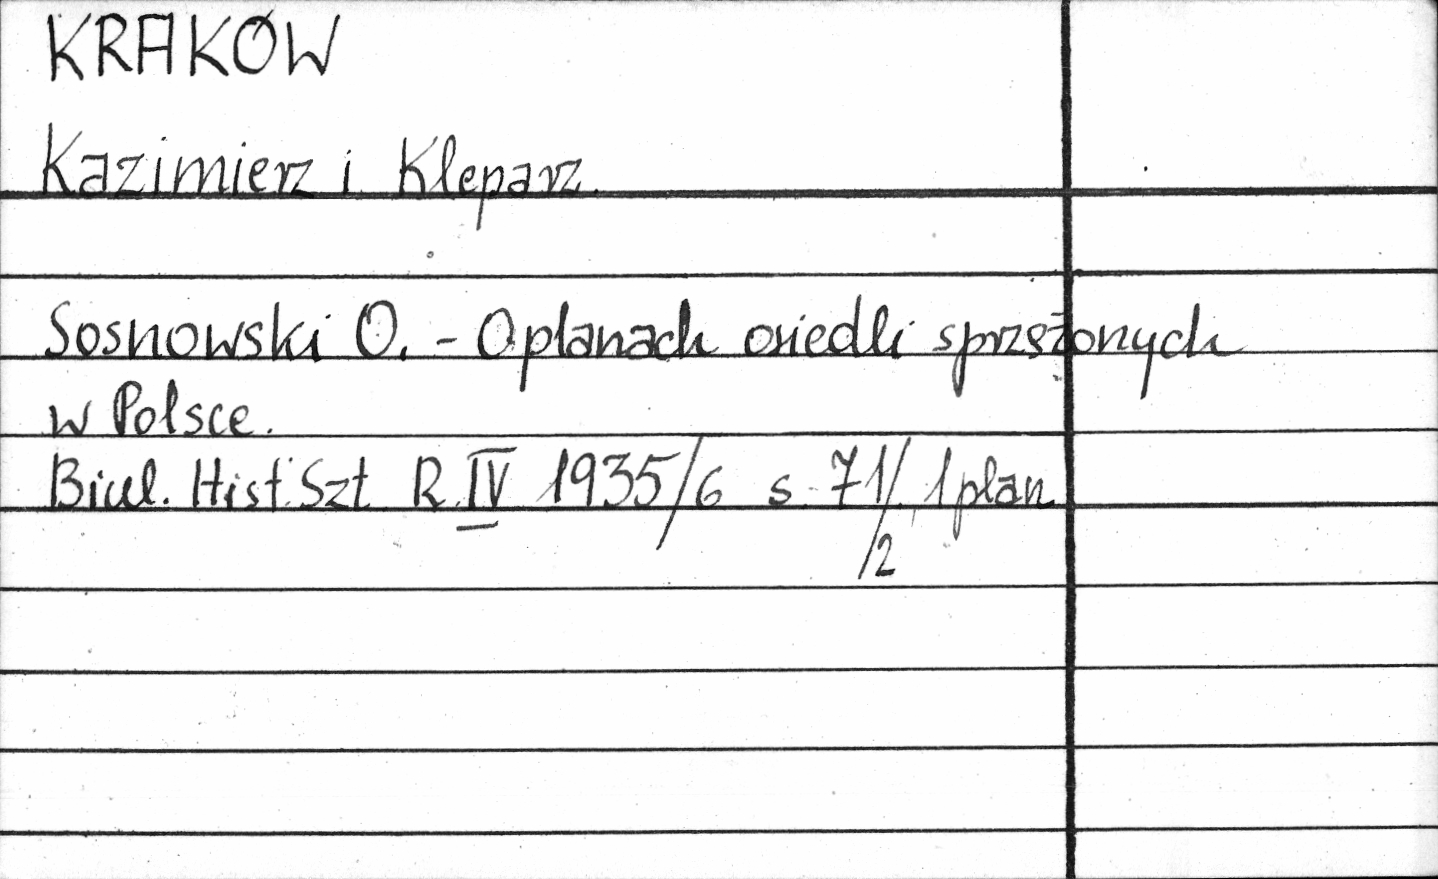 KRAKÓW
Kazimierz i Kleparz.
Sosnowski O. - O planach osiedli sprzężonych
w Polsce.
Biul. Hist. Szt R. IV 1935/6 s. 71/2, 1 plan